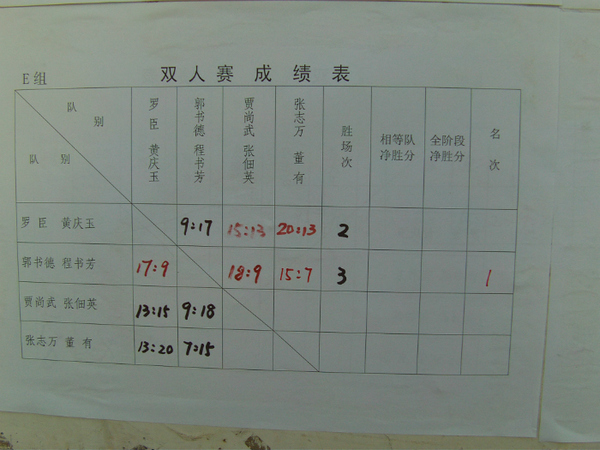 E组
双人赛成绩表
队别
队别
罗臣 黄庆玉
郭书德 程书芳
贾尚武 张佃英
张志万 董有
胜场次
相等队净胜分
全阶段净胜分
名次
罗臣 黄庆玉 9:17 15:13 20:13 2
郭书德 程书芳 17:9 18:9 15:7 3 1
贾尚武 张佃英 13:15 9:18
张志万 董有 13:20 7:15